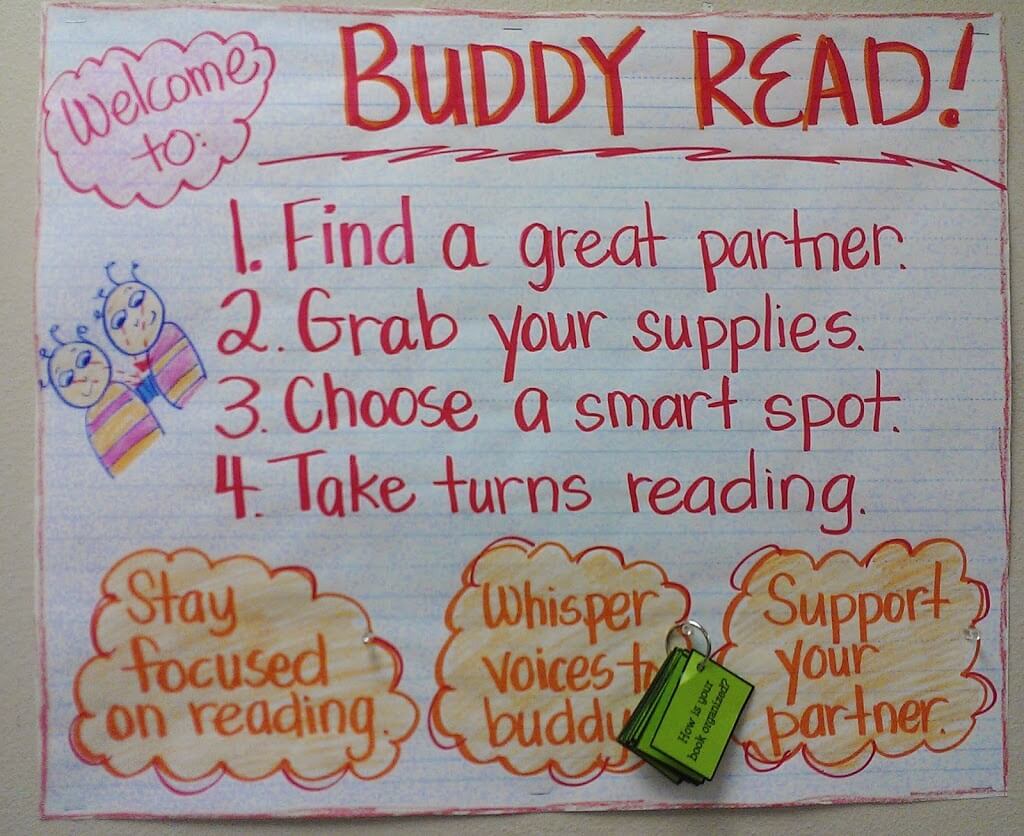 Welcome
to:
BUDDY READ!
1. Find a great partner.
2. Grab your supplies.
3. Choose a smart spot.
4. Take turns reading.
Stay
focused
on reading.
Whisper
voices
buddy
How is your
book organized?
Support
your
partner.